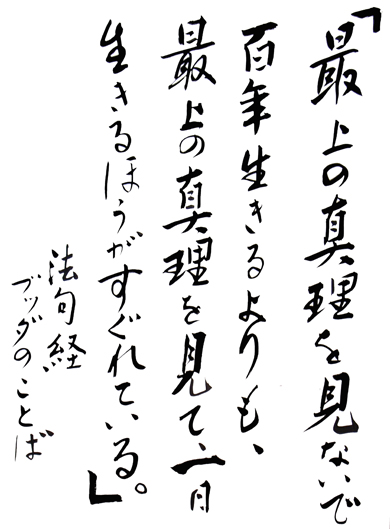 「最上の真理を見ないで
百年生きるよりも、
最上の真理を見て、一日
生きるほうがすぐれている。」
法句経
ブッダのことば